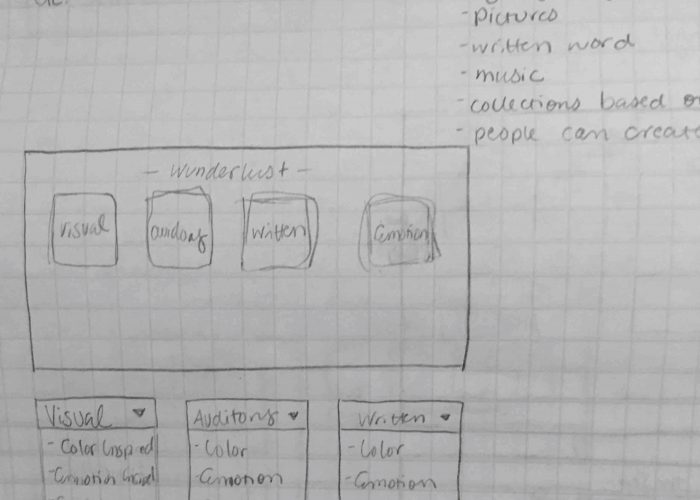 - pictures
- written word
- music
- collections based
- people can create
- wunderlust -
visual
auditory
written
Emotion
Visual
- Color Inspired
- Emotion
Auditory
- Color
- Emotion
Written
- Color
- Emotion